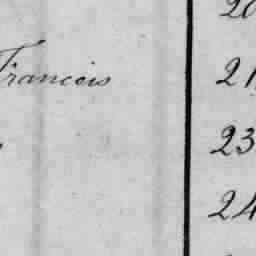 Francois 21
23
24